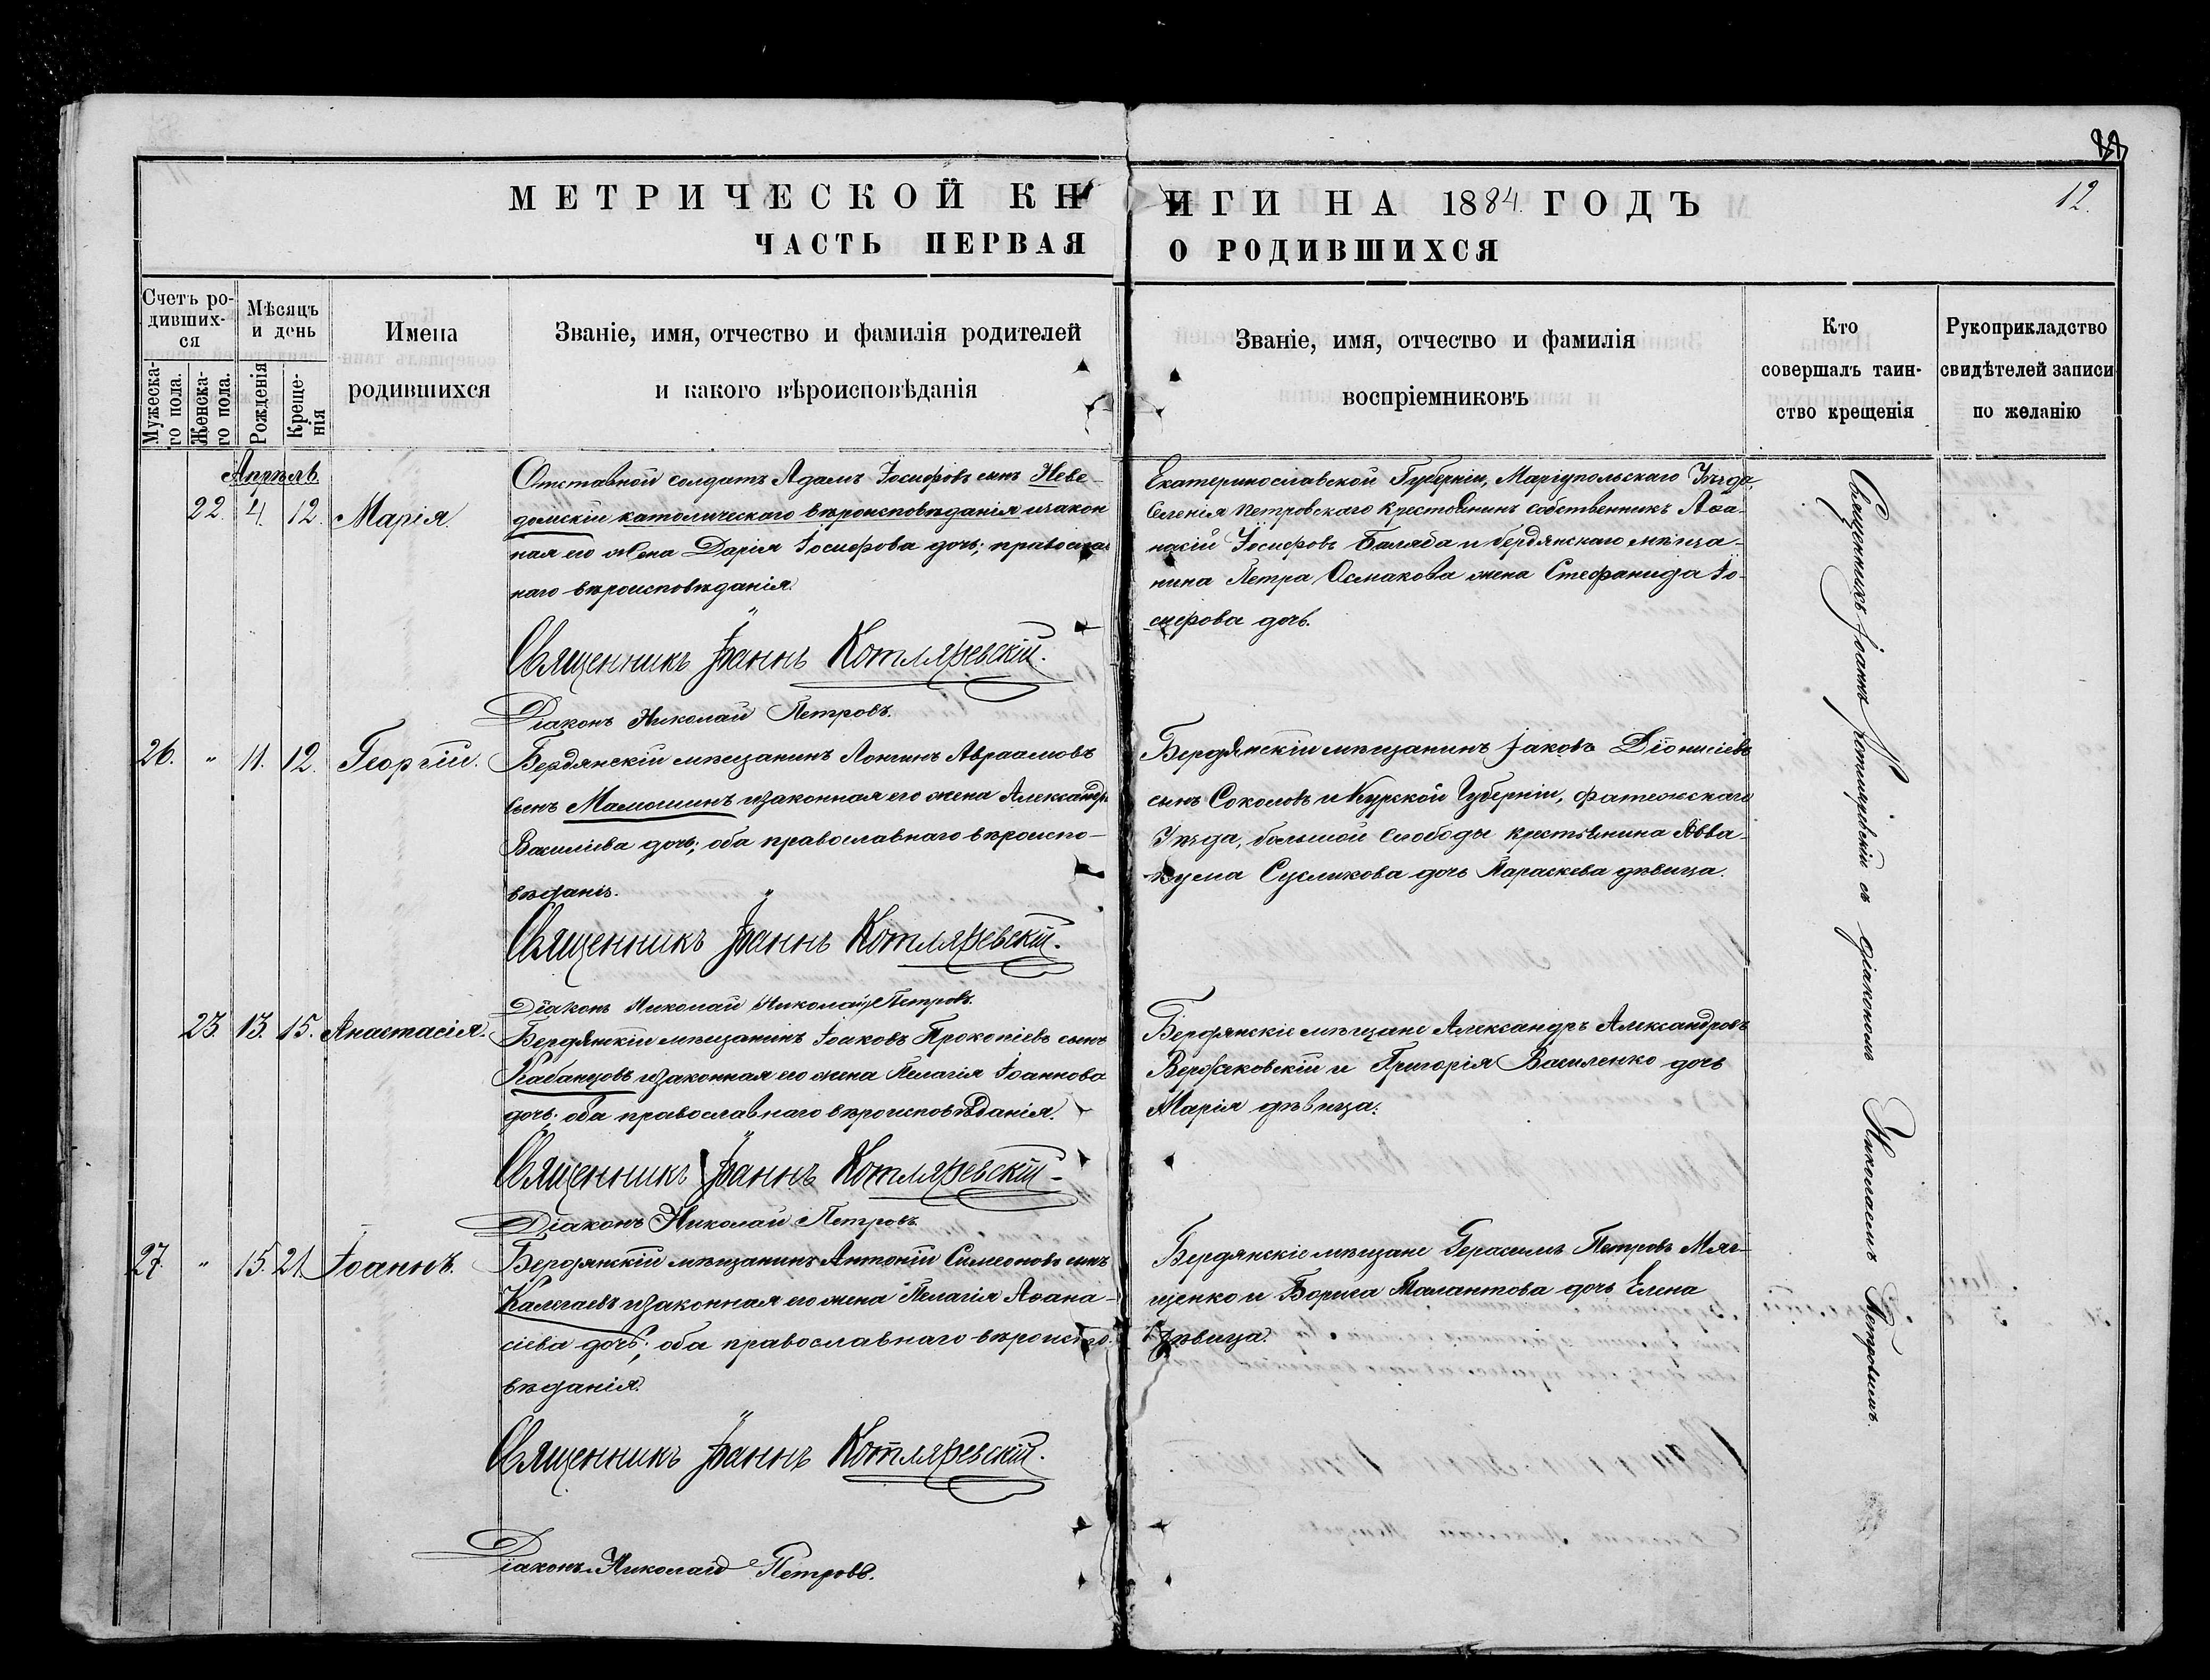 88
12.
МЕТРИЧЕСКОЙ КНИГИ НА 1884 ГОДЪ
ЧАСТЬ ПЕРВАЯ О РОДИВШИХСЯ
Счетъ ро-
дивших-
ся
Мужеска-
го пола.
Женска-
го пола.
Мѣсяцъ
и день
Рожденія
Креще-
нія
Имена
родившихся
Званіе, имя, отчество и фамилія родителей
и какого вѣроисповѣданія
Званіе, имя, отчество и фамилія
воспріемниковъ
Кто
совершалъ таин-
ство крещенія
Рукоприкладство
свидѣтелей записи
по желанію
Апрѣль
22. 4. 12. Марія.
Отставной солдатъ Адамъ Іосифовъ сынъ Неве-
домскій католическаго вѣроисповѣданія и закон
ная его жена Дарія Іосифова дочь; православ
наго вѣроисповѣданія.
Священникъ Іоаннъ Котляревскій.
Діаконъ Николай Петровъ.
Екатеринославской Губерніи, Маріупольскаго Уѣзда,
Селенія Петровскаго крестьянинъ собственникъ Аѳа-
насій Іосифовъ Баляба и бердянскаго мѣща-
нина Петра Осмакова жена Стефанида Іо-
сифова дочь.
26. " 11. 12. Георгій.
Бердянскій мѣщанинъ Лонгинъ Авраамовъ
сынъ Мамошинъ и законная его жена Александра
Василіева дочь; оба православнаго вѣроиспо-
вѣданія.
Священникъ Іоаннъ Котляревскій.
Діаконъ Николай Николай Петровъ.
Бердянскій мѣщанинъ Іаковъ Діонисіевъ
сынъ Соколовъ и Курской Губерніи, Фатежскаго
Уѣзда, большой слободы крестьянина Авва-
кума Сусликова дочь Параскева дѣвица.
23. 13. 15. Анастасія.
Бердянскій мѣщанинъ Іаковъ Прокопіевъ сынъ
Кабанцовъ и законная его жена Пелагія Іоаннова
дочь; оба православнаго вѣроисповѣданія.
Священникъ Іоаннъ Котляревскій.
Діаконъ Николай Петровъ.
Бердянскіе мѣщане Александръ Александровъ
Вержаковскій и Григорія Василенко дочь
Марія дѣвица.
27. " 15. 21. Іоаннъ.
Бердянскій мѣщанинъ Антоній Симеоновъ сынъ
Калегаевъ и законная его жена Пелагія Аѳана-
сіева дочь; оба православнаго вѣроиспо-
вѣданія.
Священникъ Іоаннъ Котляревскій.
Діаконъ Николай Петровъ.
Бердянскіе мѣщане Герасимъ Петровъ Мяг-
щенко и Бориса Талантова дочь Елена
дѣвица.
Священникъ Іоаннъ Котляревскій съ діакономъ Николаемъ Петровымъ.